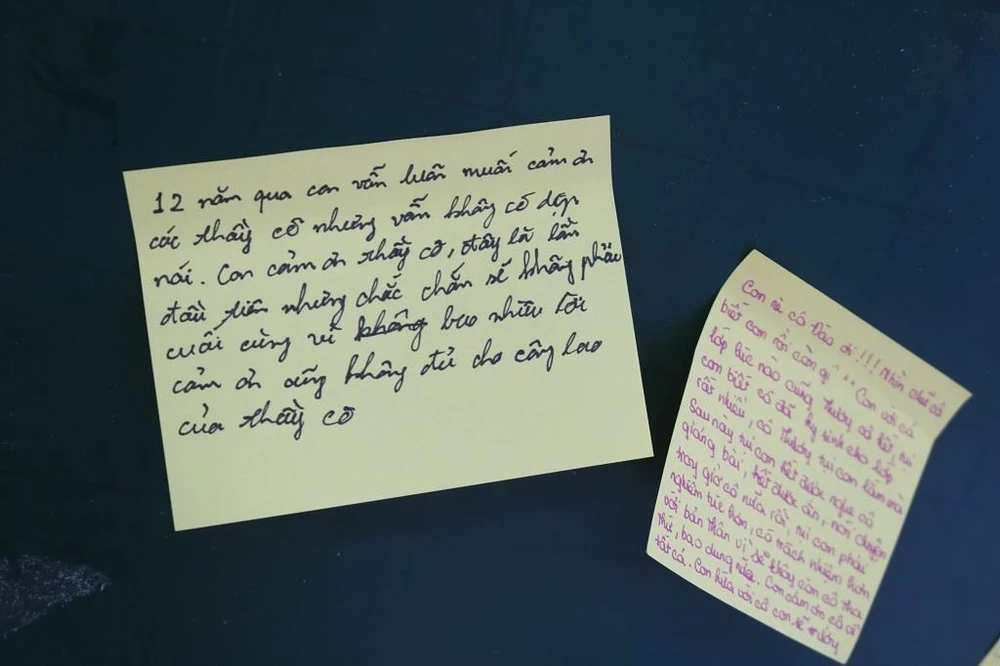 12 năm qua con vẫn luôn muốn cảm ơn
các thầy cô nhưng vẫn không có dịp
nói. Con cảm ơn thầy cô, đây là lần
đầu tiên nhưng chắc chắn sẽ không phải
cuối cùng vì không bao nhiêu lời
cảm ơn cũng không đủ cho công lao
của thầy cô
Con nè cô Đào ơi!!! Nhìn chữ cô
biết con rồi còn gì.. Con với cả
lớp lúc nào cũng thương cô hết, tụi
con biết cô đã hy sinh cho lớp
rất nhiều, cô thương tụi con lắm mà
sau này tụi con hết được nghe cô
giảng bài, hết được ăn, nói chuyện
trong giờ cô nữa rồi, tụi con phải
nghiêm túc hơn, có trách nhiệm hơn
với bản thân vì sẽ không còn cô tha
thứ, bao dung nữa. Con cảm ơn cô vì
tất cả. Con hứa với cô con sẽ